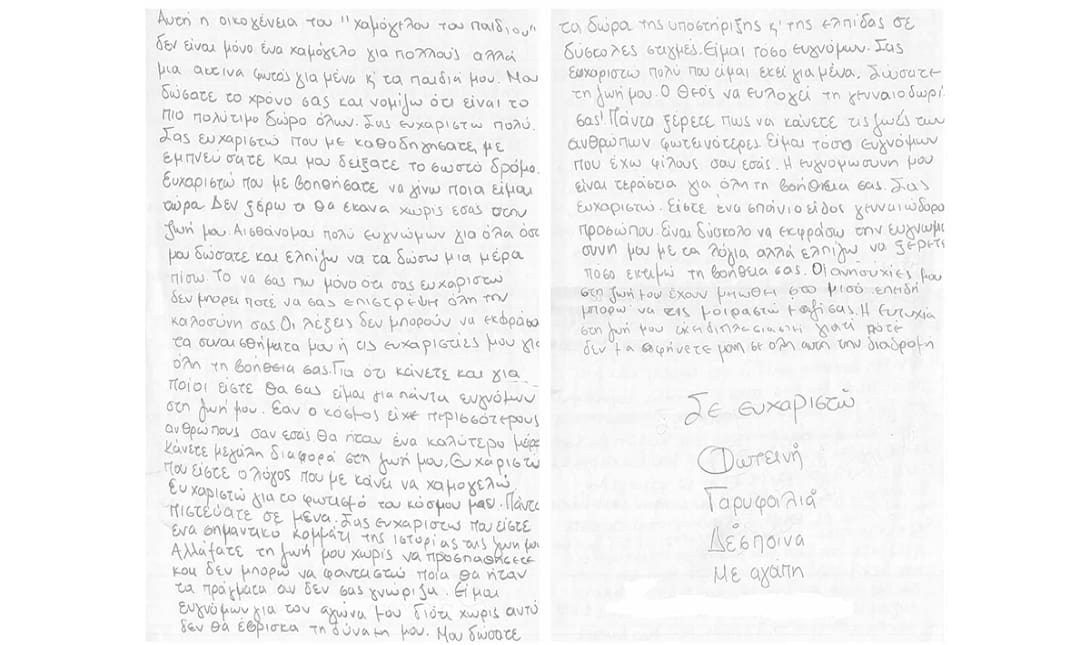 Αυτή η οικογένεια του "χαμόγελου του παιδιού"
δεν είναι μόνο ένα χαμόγελο για πολλούς αλλά
μια ακτινα φωτός για μένα κ' τα παιδιά μου. Μου
δώσατε το χρόνο σας και νομίζω ότι είναι το
πιο πολύτιμο δώρο όλων. Σας ευχαριστω πολύ.
Σας ευχαριστώ που με καθοδηγησατε, με
εμπνεύσατε και μου δείξατε το σωστό δρόμο.
Ευχαριστώ που με βοηθήσατε να γίνω ποια είμαι
τώρα. Δεν ξέρω τι θα έκανα χωρίς εσας στην
ζωή μου. Αισθάνομαι πολύ ευγνώμων για όλα όσα
μου δώσατε και ελπίζω να τα δώσω μια μέρα
πίσω. Το να σας πω μόνο ότι σας ευχαριστώ
δεν μπορεί ποτέ να σας επιστρέψη όλη την
καλοσύνη σας. Οι λέξεις δεν μπορούν να εκφράσο
τα συναισθήματα μου ή τις ευχαριστίες μου γι
όλη τη βοήθεια σας. Για ότι κάνετε και για
ποίοι είστε θα σας είμαι για πάντα ευγνόμων
στη ζωή μου. Εαν ο κόσμος είχε περισσότερους
ανθρώπους σαν εσάς θα ήταν ένα καλύτερο μέρο
Κάνετε μεγάλη διαφορά στη ζωή μου. Ευχαριστώ
που είστε ο λόγος που με κάνει να χαμογελώ.
Ευχαριστώ για το φωτισμό του κόσμου μου. Πάντα
πιστεύατε σε μένα. Σας ευχαριστω που είστε
ένα σημαντικό κομμάτι της ιστορίας της ζωή μου
Αλλάξατε τη ζωή μου χωρίς να προσπαθήσετε
και δεν μπορώ να φανταστώ ποια θα ήταν
τα πράγματα αν δεν σας γνώριζα. Είμαι
ευγνόμων για τον αγώνα μου Γιότι χωρίς αυτό
δεν θα έβρισκα τη δύναμη μου. Μου δώσατε
τα δώρα της υποστήριξης κ' της ελπίδας σε
δύσκολες στιγμές. Είμαι τόσο ευγνόμων. Σας
ευχαριστω πολύ που είμαι εκεί για μένα. Σώσατε
τη ζωή μου. Ο Θεός να ευλογεί τη γενναιοδωρί
σας! Πάντα ξέρετε πως να κάνετε τις ζωές των
ανθρώπων φωτεινότερες. Είμαι τόσο ευγνόμων
που έχω φίλους σαν εσάς. Η ευγνομωσύνη μου
είναι τεράστια για όλη τη βοήθεια σας. Σας
ευχαριστώ. Είστε ένα σπάνιο είδος γενναιώδορο
προσώπου. Είναι δύσκολο να εκφράσω την ευγνωμο
σύνη μου με τα λόγια αλλά ελπίζω να ξέρετε
πόσο εκτιμώ τη βοήθεια σας. Οι ανησυχίες μου
στη ζωή μου έχουν μειωθεί στο μισό επειδή
μπορώ να τις μοιραστώ μαζί σας. Η Ευτυχία
στη ζωή μου έχει διπλασιαστή γιατί πότε
δεν με αφήνετε μόνη σε όλη αυτή την διαδρομή
Σε ευχαριστώ
Φωτεινή
Γαρυφαλιά
Δέσποινα
Με αγάπη